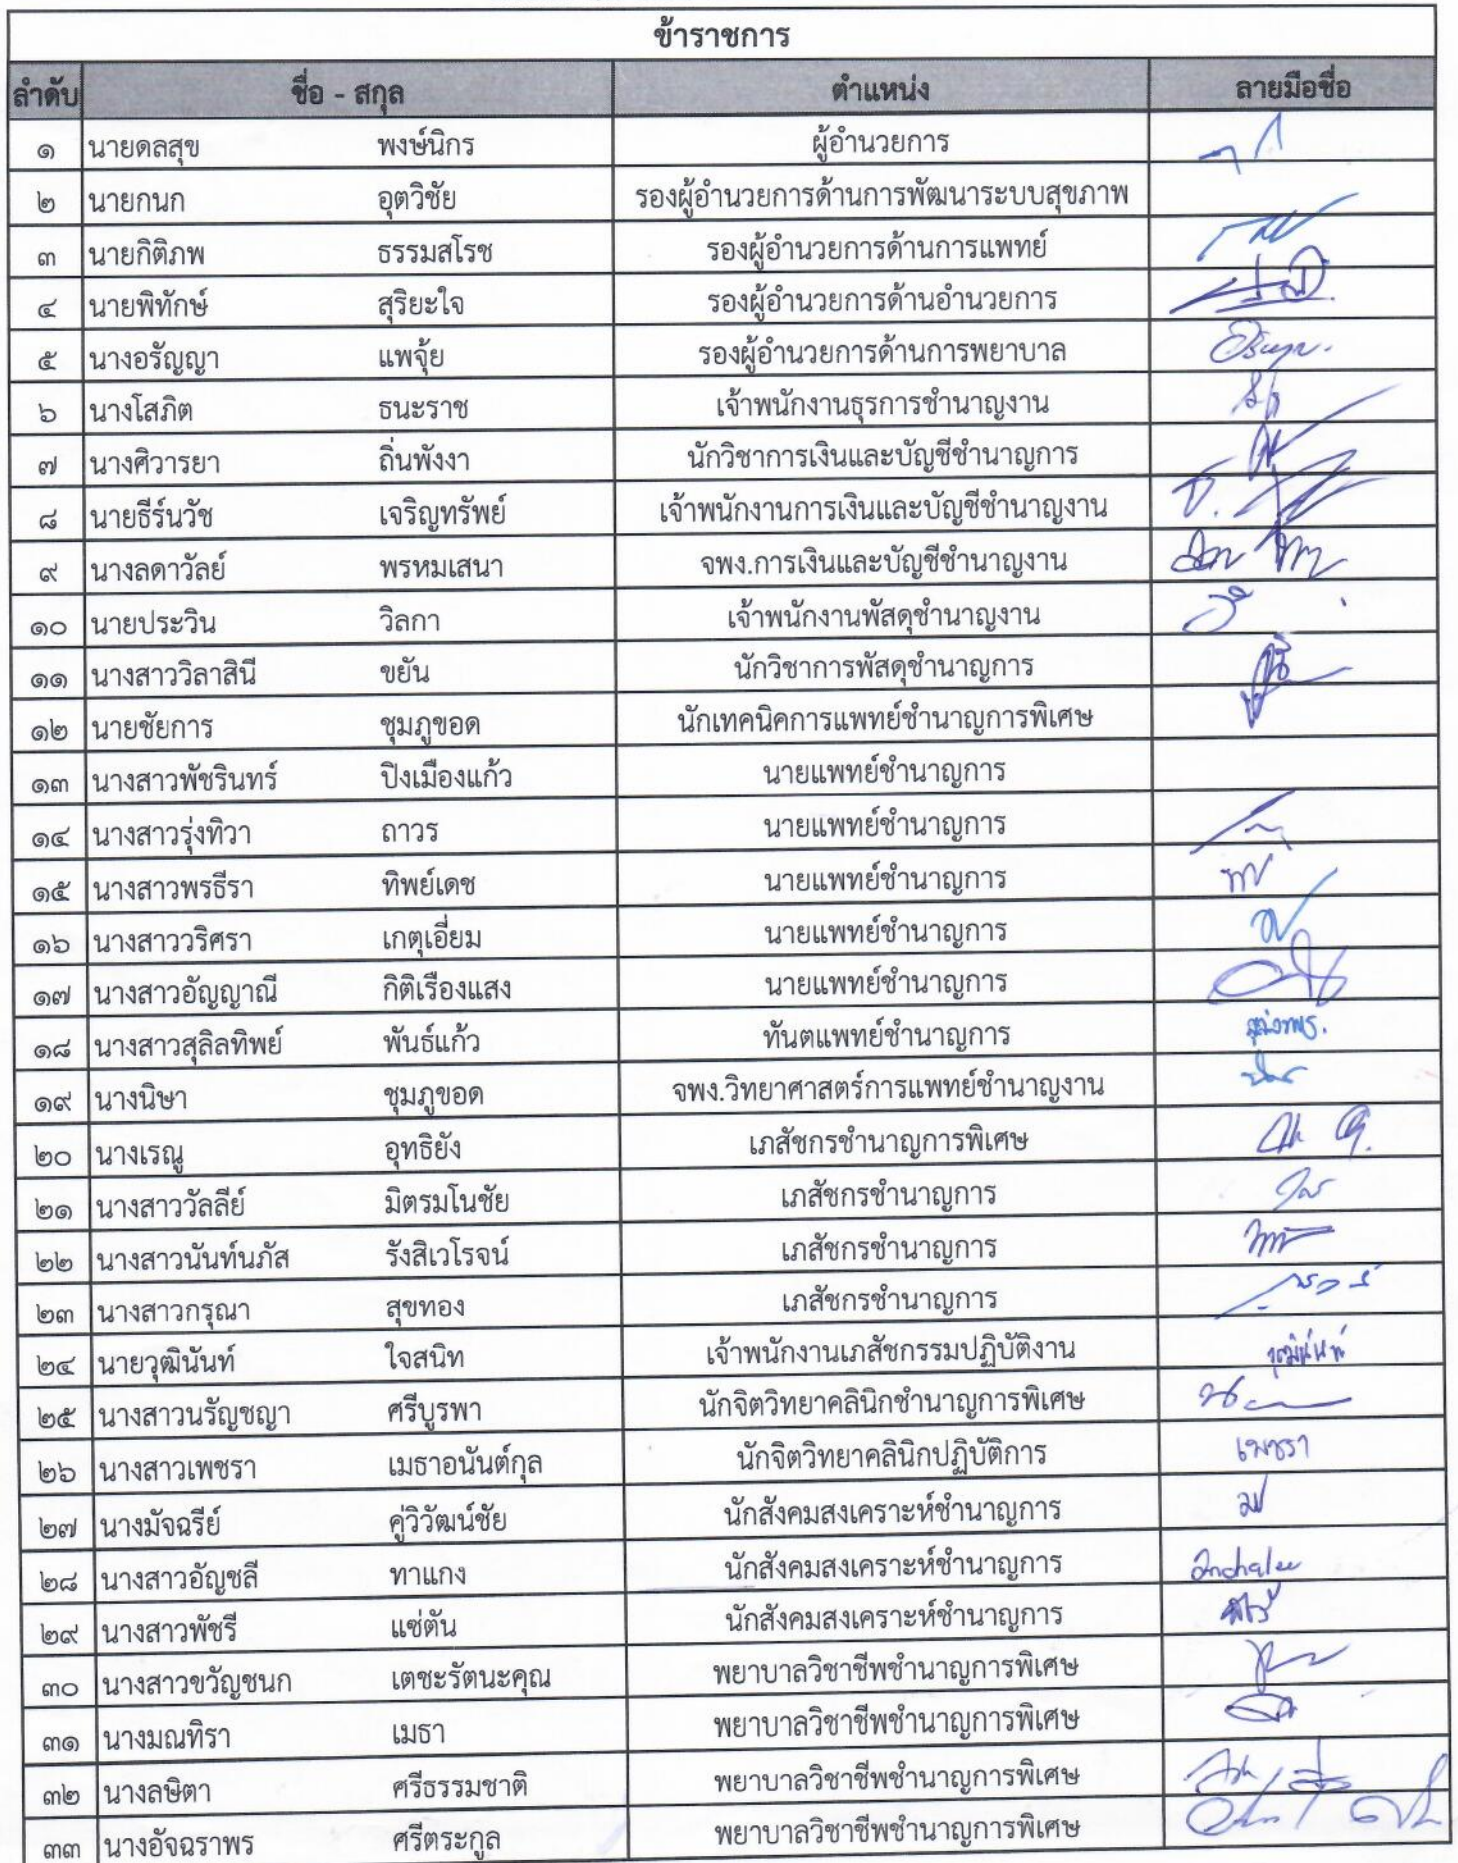 ข้าราชการ
ลำดับ ชื่อ - สกุล ตำแหน่ง ลายมือชื่อ
๑ นายดลสุข พงษ์นิกร ผู้อำนวยการ
๒ นายกนก อุตวิชัย รองผู้อำนวยการด้านการพัฒนาระบบสุขภาพ
๓ นายกิติภพ ธรรมสโรช รองผู้อำนวยการด้านการแพทย์
๔ นายพิทักษ์ สุริยะใจ รองผู้อำนวยการด้านอำนวยการ
๕ นางอรัญญา แพจุ้ย รองผู้อำนวยการด้านการพยาบาล
๖ นางโสภิต ธนะราช เจ้าพนักงานธุรการชำนาญงาน
๗ นางศิวารยา ถิ่นพังงา นักวิชาการเงินและบัญชีชำนาญการ
๘ นายธีร์นวัช เจริญทรัพย์ เจ้าพนักงานการเงินและบัญชีชำนาญงาน
๙ นางลดาวัลย์ พรหมเสนา จพง.การเงินและบัญชีชำนาญงาน
๑๐ นายประวิน วิลกา เจ้าพนักงานพัสดุชำนาญงาน
๑๑ นางสาววิลาสินี ขยัน นักวิชาการพัสดุชำนาญการ
๑๒ นายชัยการ ชุมภูขอด นักเทคนิคการแพทย์ชำนาญการพิเศษ
๑๓ นางสาวพัชรินทร์ ปิงเมืองแก้ว นายแพทย์ชำนาญการ
๑๔ นางสาวรุ่งทิวา ถาวร นายแพทย์ชำนาญการ
๑๕ นางสาวพรธีรา ทิพย์เดช นายแพทย์ชำนาญการ
๑๖ นางสาววริศรา เกตุเอี่ยม นายแพทย์ชำนาญการ
๑๗ นางสาวอัญญาณี กิติเรืองแสง นายแพทย์ชำนาญการ
๑๘ นางสาวสุลิลทิพย์ พันธ์แก้ว ทันตแพทย์ชำนาญการ
๑๙ นางนิษา ชุมภูขอด จพง.วิทยาศาสตร์การแพทย์ชำนาญงาน
๒๐ นางเรณู อุทธิยัง เภสัชกรชำนาญการพิเศษ
๒๑ นางสาววัลลีย์ มิตรมโนชัย เภสัชกรชำนาญการ
๒๒ นางสาวนันท์นภัส รังสิเวโรจน์ เภสัชกรชำนาญการ
๒๓ นางสาวกรุณา สุขทอง เภสัชกรชำนาญการ
๒๔ นายวุฒินันท์ ใจสนิท เจ้าพนักงานเภสัชกรรมปฏิบัติงาน วุฒินันท์
๒๕ นางสาวนรัญชญา ศรีบูรพา นักจิตวิทยาคลินิกชำนาญการพิเศษ
๒๖ นางสาวเพชรา เมธาอนันต์กุล นักจิตวิทยาคลินิกปฏิบัติการ เพชรา
๒๗ นางมัจฉรีย์ คู่วิวัฒน์ชัย นักสังคมสงเคราะห์ชำนาญการ
๒๘ นางสาวอัญชลี ทาแกง นักสังคมสงเคราะห์ชำนาญการ Anchalee
๒๙ นางสาวพัชรี แซ่ตัน นักสังคมสงเคราะห์ชำนาญการ
๓๐ นางสาวขวัญชนก เตชะรัตนะคุณ พยาบาลวิชาชีพชำนาญการพิเศษ
๓๑ นางมณทิรา เมธา พยาบาลวิชาชีพชำนาญการพิเศษ
๓๒ นางลษิตา ศรีธรรมชาติ พยาบาลวิชาชีพชำนาญการพิเศษ
๓๓ นางอัจฉราพร ศรีตระกูล พยาบาลวิชาชีพชำนาญการพิเศษ